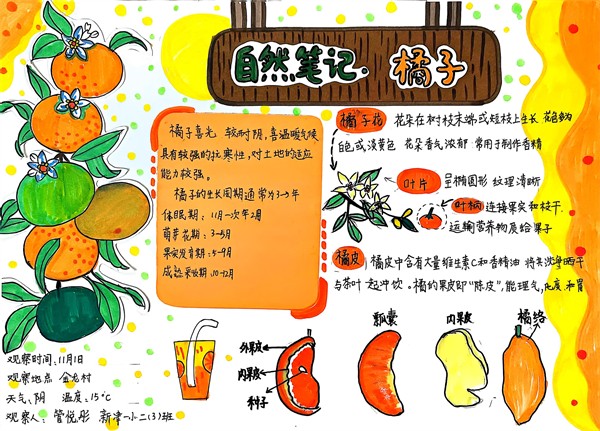 自然笔记·橘子
橘子喜光 较耐阴,喜温暖气候
具有较强的抗寒性,对土地的适应
能力较强。
橘子的生长周期通常为3→5年
休眠期:11月-次年2月
萌芽花期:3-5月
果实发育期:5-9月
成熟采收期:10-12月
橘子花 花朵在树枝末端或短枝上生长 花色多为
白色或淡黄色 花朵香气浓郁 常用于制作香精
叶片 呈椭圆形 纹理清晰
叶柄 连接果实和枝干
运输营养物质给果子
橘皮 橘皮中含有大量维生素C和香精油 将其洗净晒干
与茶叶一起冲饮。橘的果皮即“陈皮”,能理气,化痰 和胃
外果皮
内果皮
种子
瓢囊
内果皮
橘络
观察时间:11月1日
观察地点 金龙村
天气:阴 温度:15°C
观察人:管悦彤 新津一小二(3)班